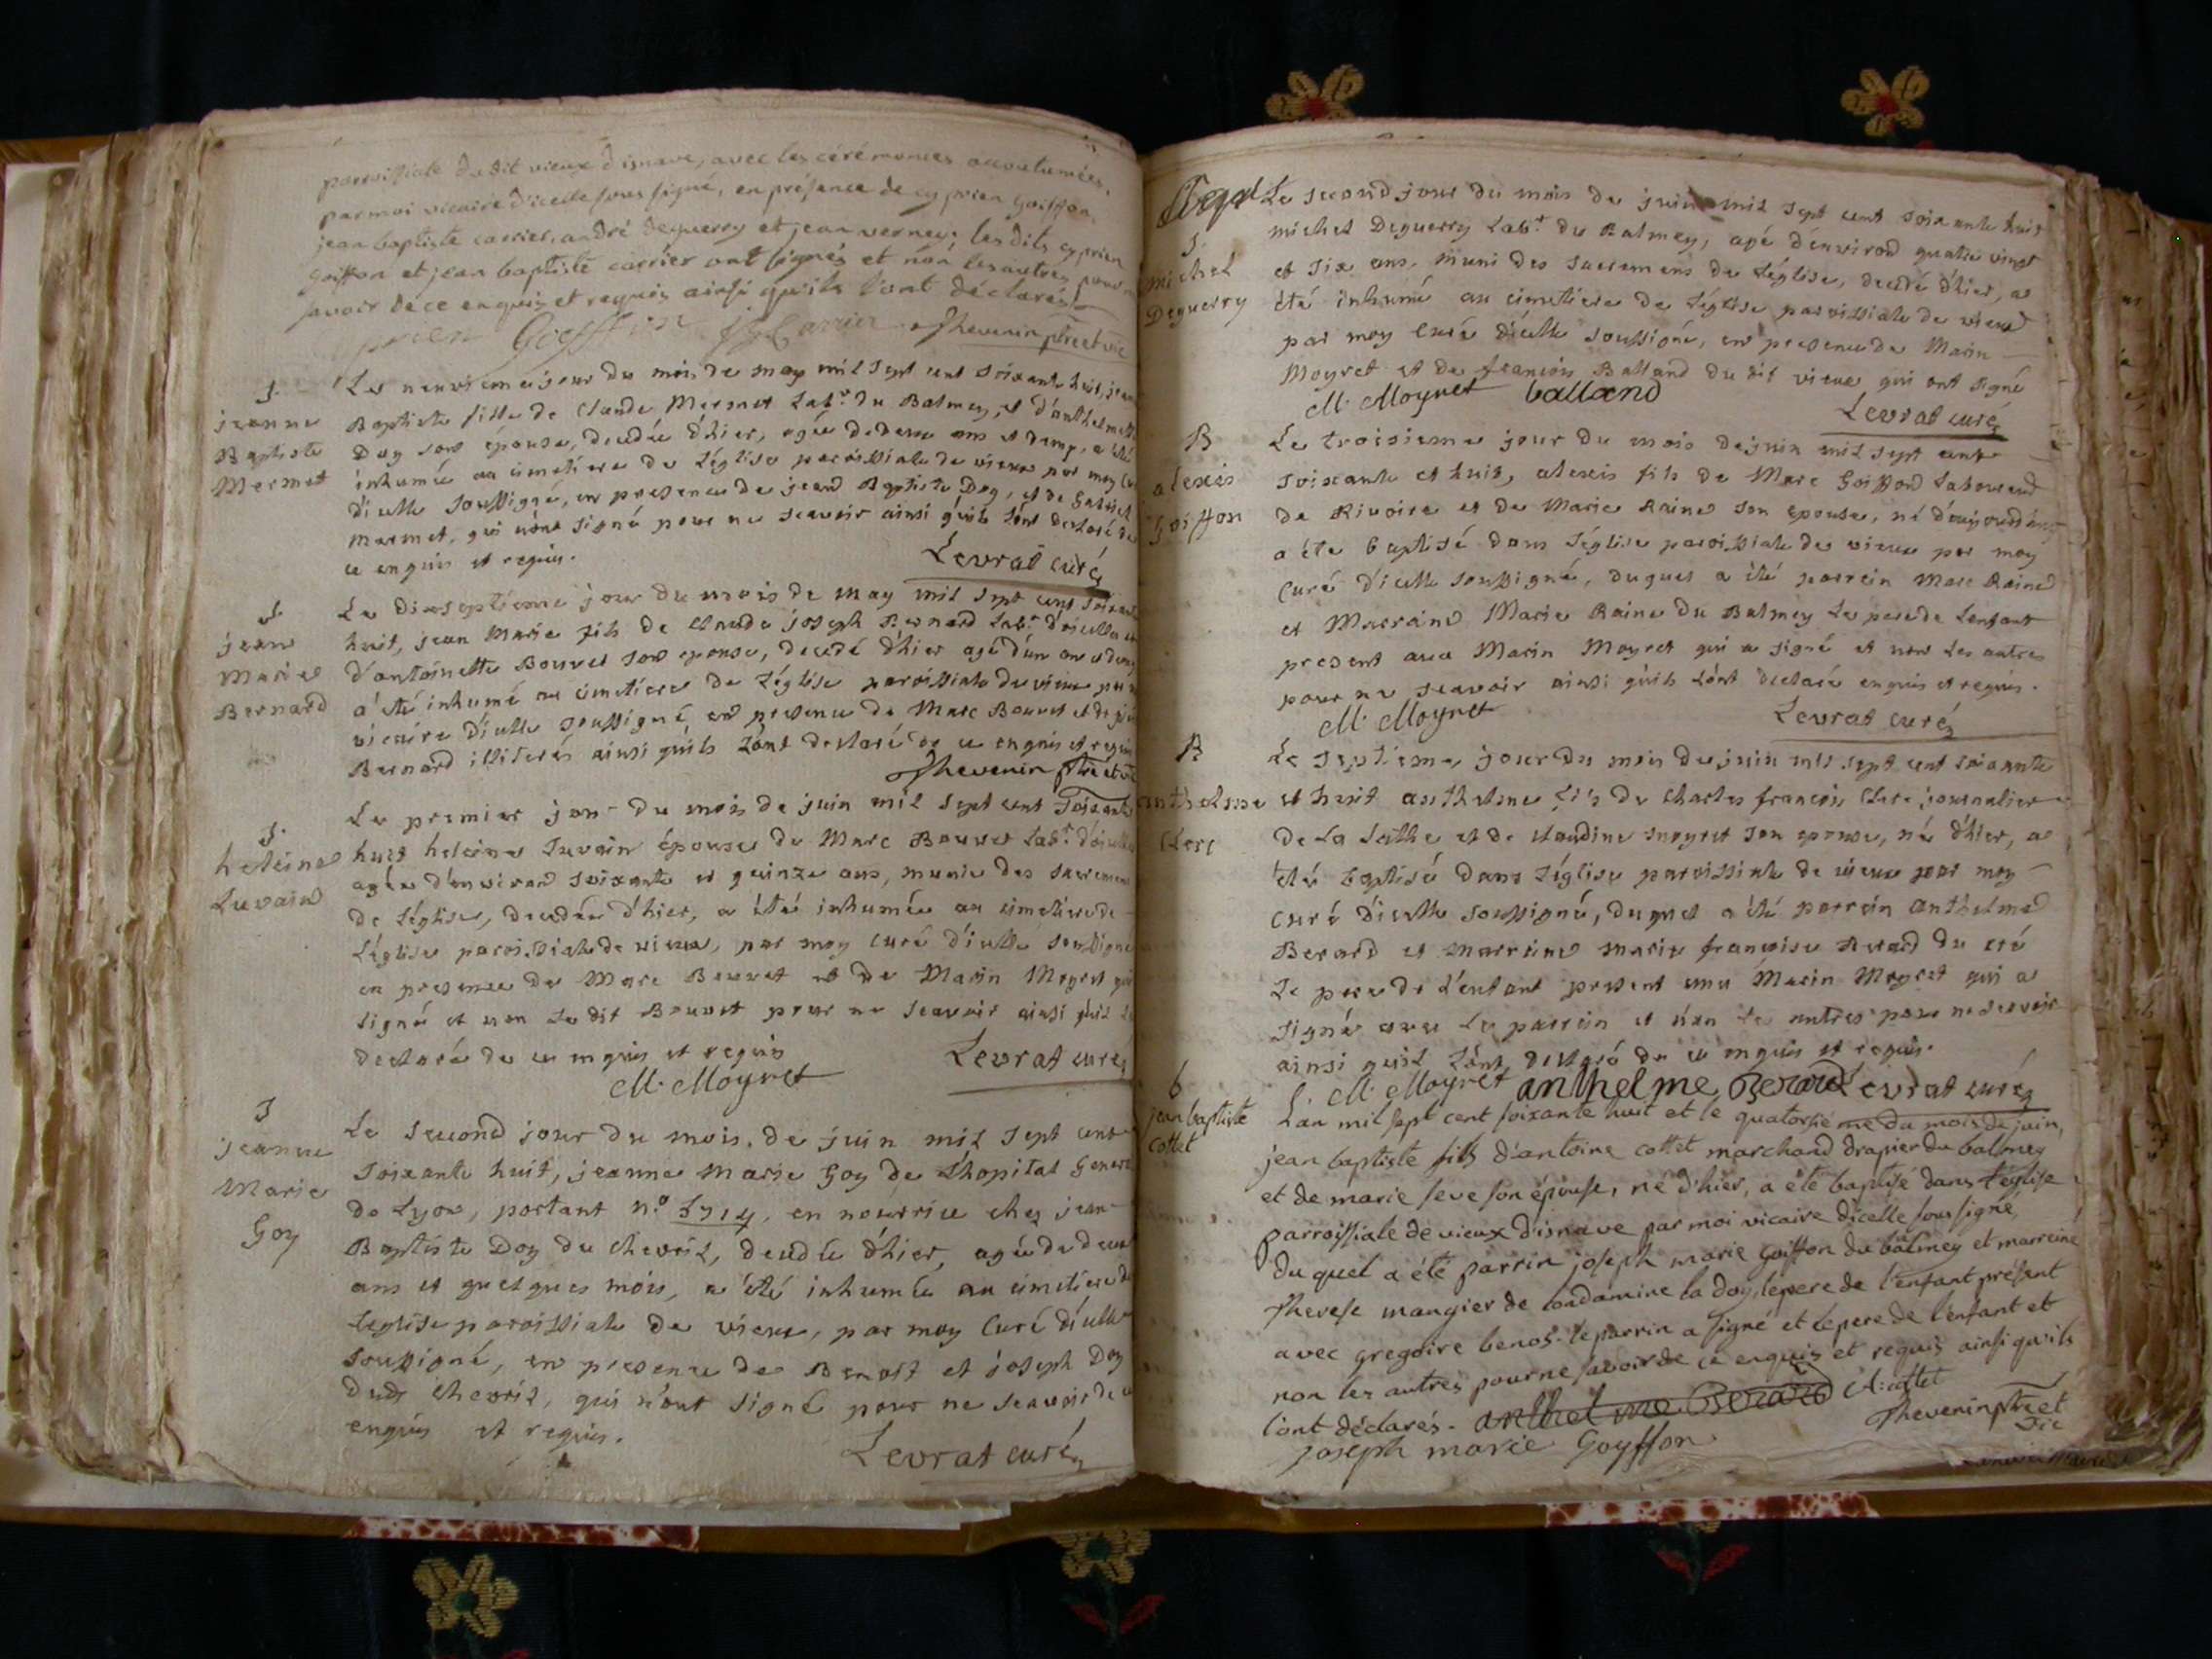 parroissiale du dit vieux d'isnave, avec les cérémonies accoutumées,
par moi vicaire d'icelle sous signé, en présence de cyprien goiffon,
jean baptiste carrier, andré deguerry et jean verney; les dits cyprien
goiffon et jean baptiste carrier ont signés et non les autres pour ne
savoir de ce enquis et requis ainsi qu'ils l'ont déclarés
Goiffon J B Carrier Thevenin ptre et vic
S.
jeanne
Baptiste
Mermet
Le neuvieme jour du mois de may mil sept cent soixante huit, jeanne
Baptiste fille de Claude Mermet Labr. du Balmey, et d'anthelmette
Doy son épouse, decedée d'hier, agée de deux ans et demy, a été
inhumée au cimetiere de L'église paroissiale de vieux par moy Curé
d'icelle soussigné, en presence de jean Baptiste Doy, et de Gabriel
Mermet, qui n'ont signé pour ne scavoir ainsi qu'ils L'ont declaré de
ce enquis et requis.
Levrat curé
S.
jean
Marie
Bernard
Le dixseptieme jour du mois de may mil sept cent soixante
huit, jean Marie fils de Claude joseph Bernard Labr.
d'antoinette Bouvet son epouse, decedé d'hier agé d'un an et demy
a été inhumé au cimetiere de L'église paroissiale de vieux par
vicaire d'icelle soussigné en presence de Marc Bouvet et de
Bernard illiterés ainsi qu'ils L'ont declaré de ce enquis et requis
Thevenin ptre et vic
S.
heleine
Luvain
Le premier jour du mois de juin mil sept cent soixante
huit heleine Luvain épouse de Marc Bouvet Labr.
agée d'environ soixante et quinze ans, munie des sacremens
de L'église, decedée d'hier, a été inhumée au cimetiere de
L'église paroissiale de vieux, par moy curé d'icelle soussigné
en presence de Marc Bouvet et de Marin Moyret qui
signé et non Le dit Bouvet pour ne scavoir ainsi qu'il L'a
declaré de ce enquis et requis
M. Moyret Levrat curé
S
jeanne
Marie
Goy
Le second jour du mois de juin mil sept cent
soixante huit, jeanne Marie Goy de L'hopital General
de Lyon, portant n.o 5714, en nourrice chez jean
Baptiste Doy du chevril, decedée d'hier, agée de deux
ans et quelques mois, a été inhumée au cimetiere de
L'église paroissiale de vieux, par moy Curé d'icelle
soussigné, en presence de Benoit et joseph Doy
dudt chevril, qui n'ont signé pour ne scavoir de ce
enquis et requis.
Levrat curé
S.
michel
Deguerry
Le second jour du mois de juin mil sept cent soixante huit
michel Deguerry Labr. du Balmey, agé d'environ quatre vingt
et six ans, muni des sacremens de L'église, decedé d'hier, a
été inhumé au cimetiere de L'église paroissiale de vieux
par moy Curé d'icelle soussigné, en presence de Marin
Moyret et de francois Balland du dit vieux qui ont signé
M. Moyret balland
Levrat curé
B
alexis
Goiffon
Le troisieme jour du mois de juin mil sept cent
soixante et huit, alexis fils de Marc Goiffon Laboureur
de Rivoire et de Marie Raine son epouse, né d'aujourd'huy
a été baptisé dans L'église paroissiale de vieux par moy
Curé d'icelle soussigné, duquel a été parrein Marc Raine
et Marraine Marie Raine du Balmey Le pere de L'enfant
present avec Marin Moyret qui a signé et non Les autres
pour ne scavoir ainsi qu'ils L'ont declaré enquis et requis.
M. Moyret Levrat curé
B
anthelme
Clerc
Le septieme jour du mois de juin mil sept cent soixante
et huit anthelme fils de Charles francois Clerc journalier
de La Lethe et de Claudine moyret son epouse, né d'hier, a
été baptisé dans L'église paroissiale de vieux par moy
Curé d'icelle soussigné, duquel a été parrein anthelme
Berard et marreine marie francoise Berard du
Le pere de L'enfant present avec Marin Moyret qui a
signé avec Le parrein et non Les autres pour ne scavoir
ainsi qu'il L'ont declaré de ce enquis et requis.
M. Moyret anthelme Berard Levrat curé
b
jean baptiste
cottet
L'an mil sept cent soixante huit et le quatorsième du mois de juin,
jean baptiste fils d'antoine cottet marchand drapier du balmey
et de marie seve son épouse, né d'hier, a été baptisé dans l'église
parroissiale de vieux d'isnave par moi vicaire d'icelle sous signé,
du quel a été parrin joseph marie goiffon du balmey et marreine
therese mangier de condamine la doy, le pere de l'enfant présent
avec gregoire benos. le parrin a signé et le pere de l'enfant et
non les autres pour ne savoir de ce enquis et requis ainsi qu'ils
l'ont déclarés. anthelme Berard A. cottet
joseph marie Goyffon Thevenin ptre et
vic